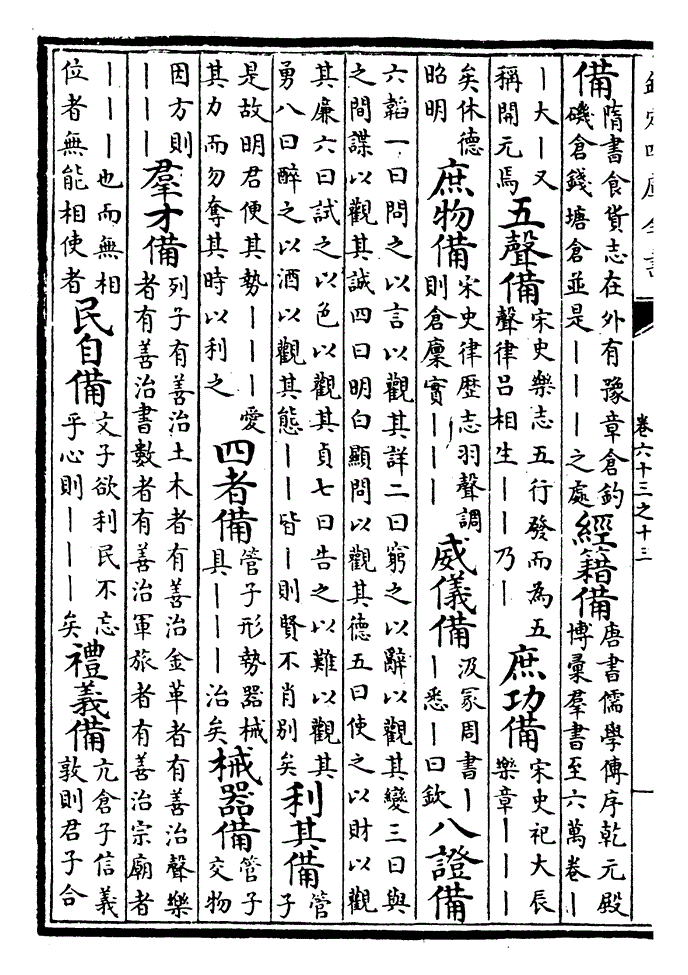 欽定四庫全書
卷六十三之十三
備隋書食貨志在外有豫章倉釣磯倉錢塘倉並是｜｜｜之處 經籍備唐書儒學傳序乾元殿博彙羣書至六萬卷｜
｜大｜又稱開元焉 五聲備宋史樂志五行發而為五聲律呂相生｜｜乃｜ 庶功備宋史祀大辰樂章｜｜｜
矣休德昭明 庶物備宋史律歴志羽聲調則倉廩實｜｜｜ 威儀備汲冡周書｜｜悉｜曰欽 八證備
六韜一曰問之以言以觀其詳二曰窮之以辭以觀其變三曰與之間諜以觀其誠四曰明白顯問以觀其德五曰使之以財以觀
其廉六曰試之以色以觀其貞七曰告之以難以觀其勇八曰醉之以酒以觀其態｜｜皆｜則賢不肖別矣 利其備管子
是故明君便其勢｜｜｜愛其力而勿奪其時以利之 四者備管子形勢器械具｜｜｜治矣 械器備管子交物
因方則｜｜｜ 羣才備列子有善治土木者有善治金革者有善治聲樂者有善治書數者有善治軍旅者有善治宗廟者
｜｜｜也而無相位者無能相使者 民自備文子欲利民不忘乎心則｜｜｜矣 禮義備亢倉子信義敦則君子合